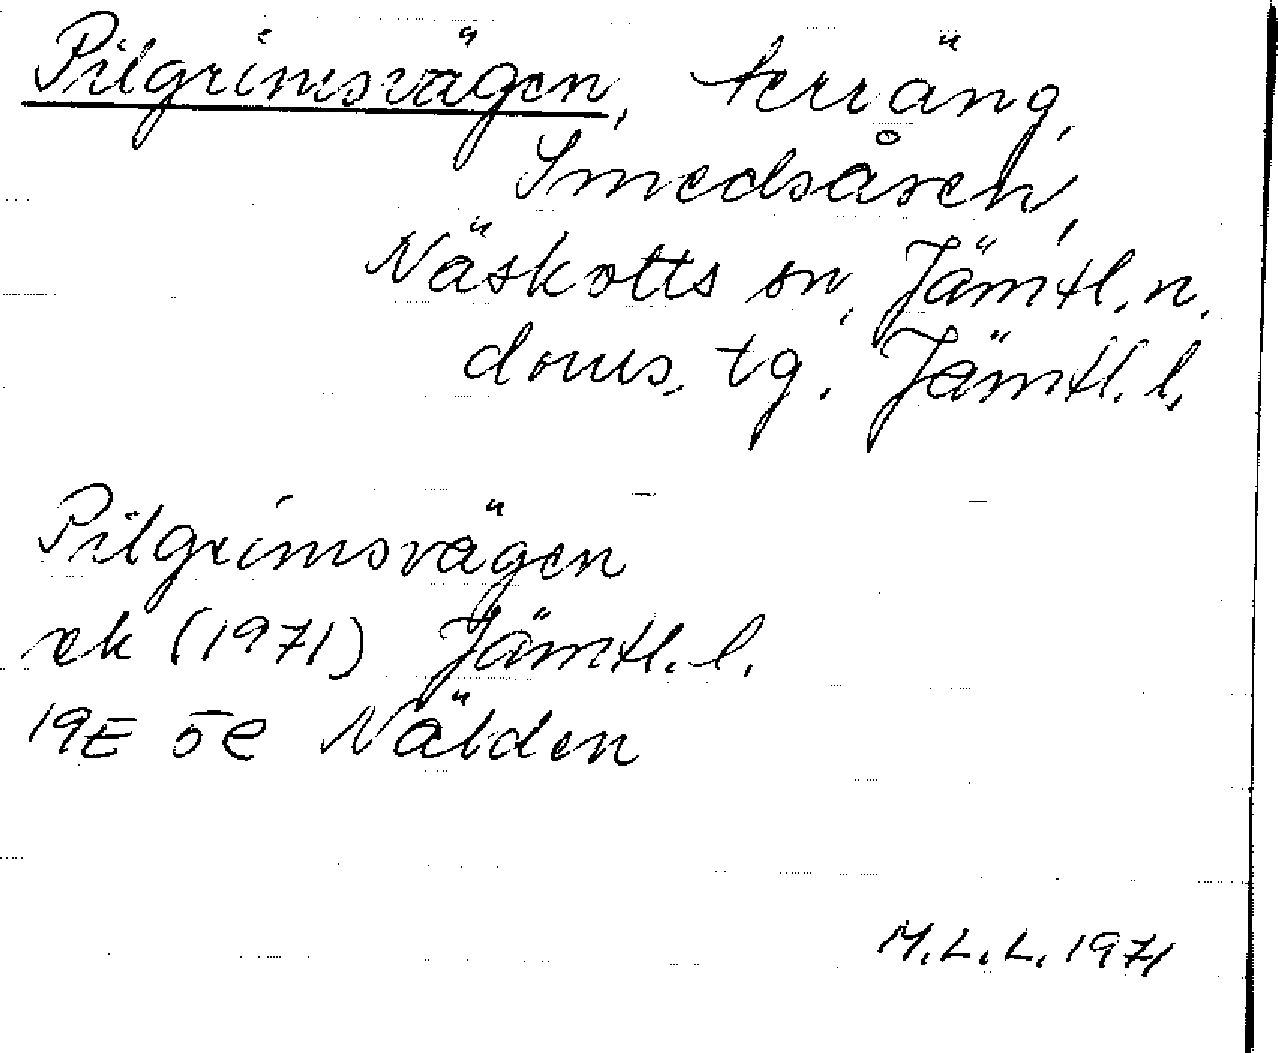 Pilgrimsvägen, terräng,
Smedsåsen,
Näskotts sn, Jämtl. n.
doms. tg. Jämtl. l.
Pilgrimsvägen
ek (1971) Jämtl. l.
19E 5e Nälden
M.L.L. 1971